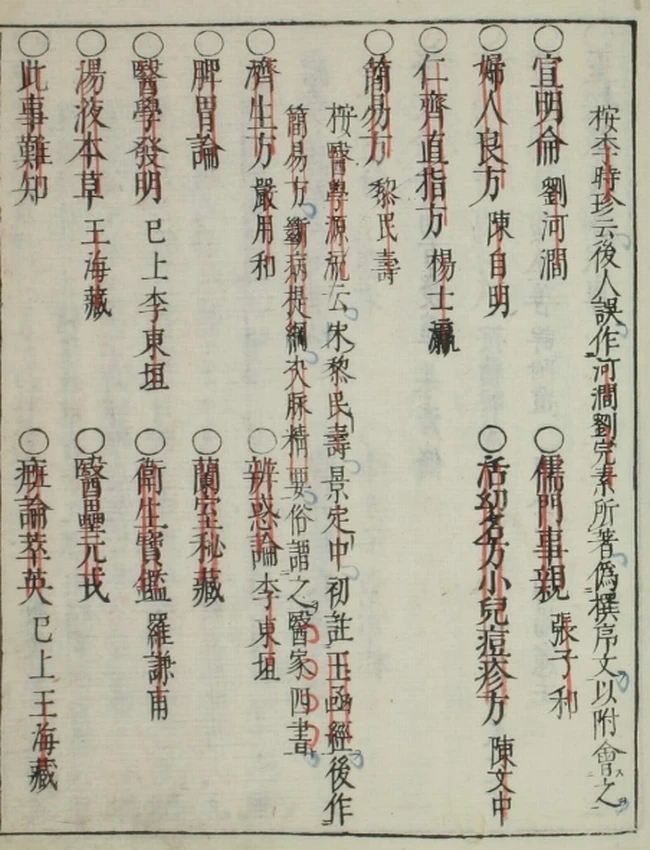 桉李時珍云後人誤作河澗劉完素所著偽撰序文以附會之
○宣明侖 劉河澗 ○儒門事親 張子和
○婦人良方 陳自明 ○活幼名方小兒痘疹方 陳文中
○仁齊直指方 楊士瀛
○簡易方 黎民壽
桉醫學源流云宋黎民壽景定中初註玉函經後作
簡易方斷病提綱决脉精要俗謂之醫家四書
○濟生方 嚴用和 ○辨惑論 李東垣
○脾胃論 ○蘭室秘藏
○醫學發明 已上李東垣 ○衛生寶鑑 羅謙甫
○湯液本草 王海藏 ○醫壘元戎
○此事難知 ○癍論萃英 已上王海藏